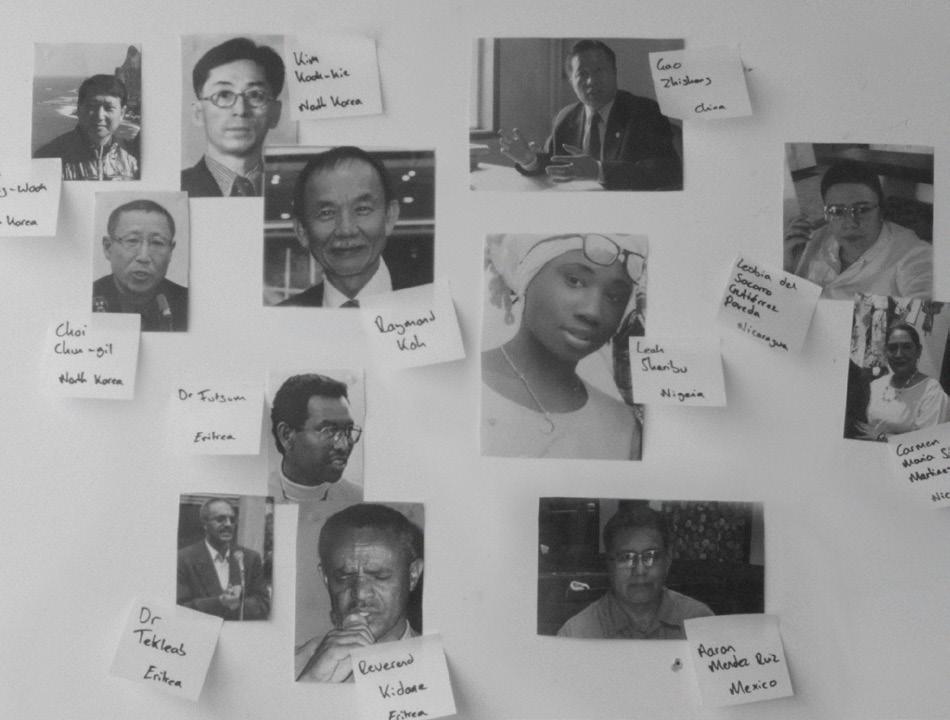 Kim
Kook-kie
North Korea
Gao
Zhisheng
China
Korea
Choi
Chun-gil
North Korea
Raymond
Koh
Leah
Sharibu
Nigeria
Lesbia del
Socorro
Gutiérrez
Poveda
Nicaragua
Carmen
Maria
Martinez
Nic
Dr Futsum
Eritrea
Dr
Tekleab
Eritrea
Reverend
Kidane
Eritrea
Aaron
Mendez Ruiz
Mexico